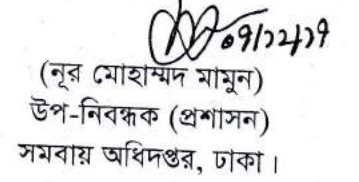 (নূর মোহাম্মদ মামুন)
উপ-নিবন্ধক (প্রশাসন)
সমবায় অধিদপ্তর, ঢাকা।